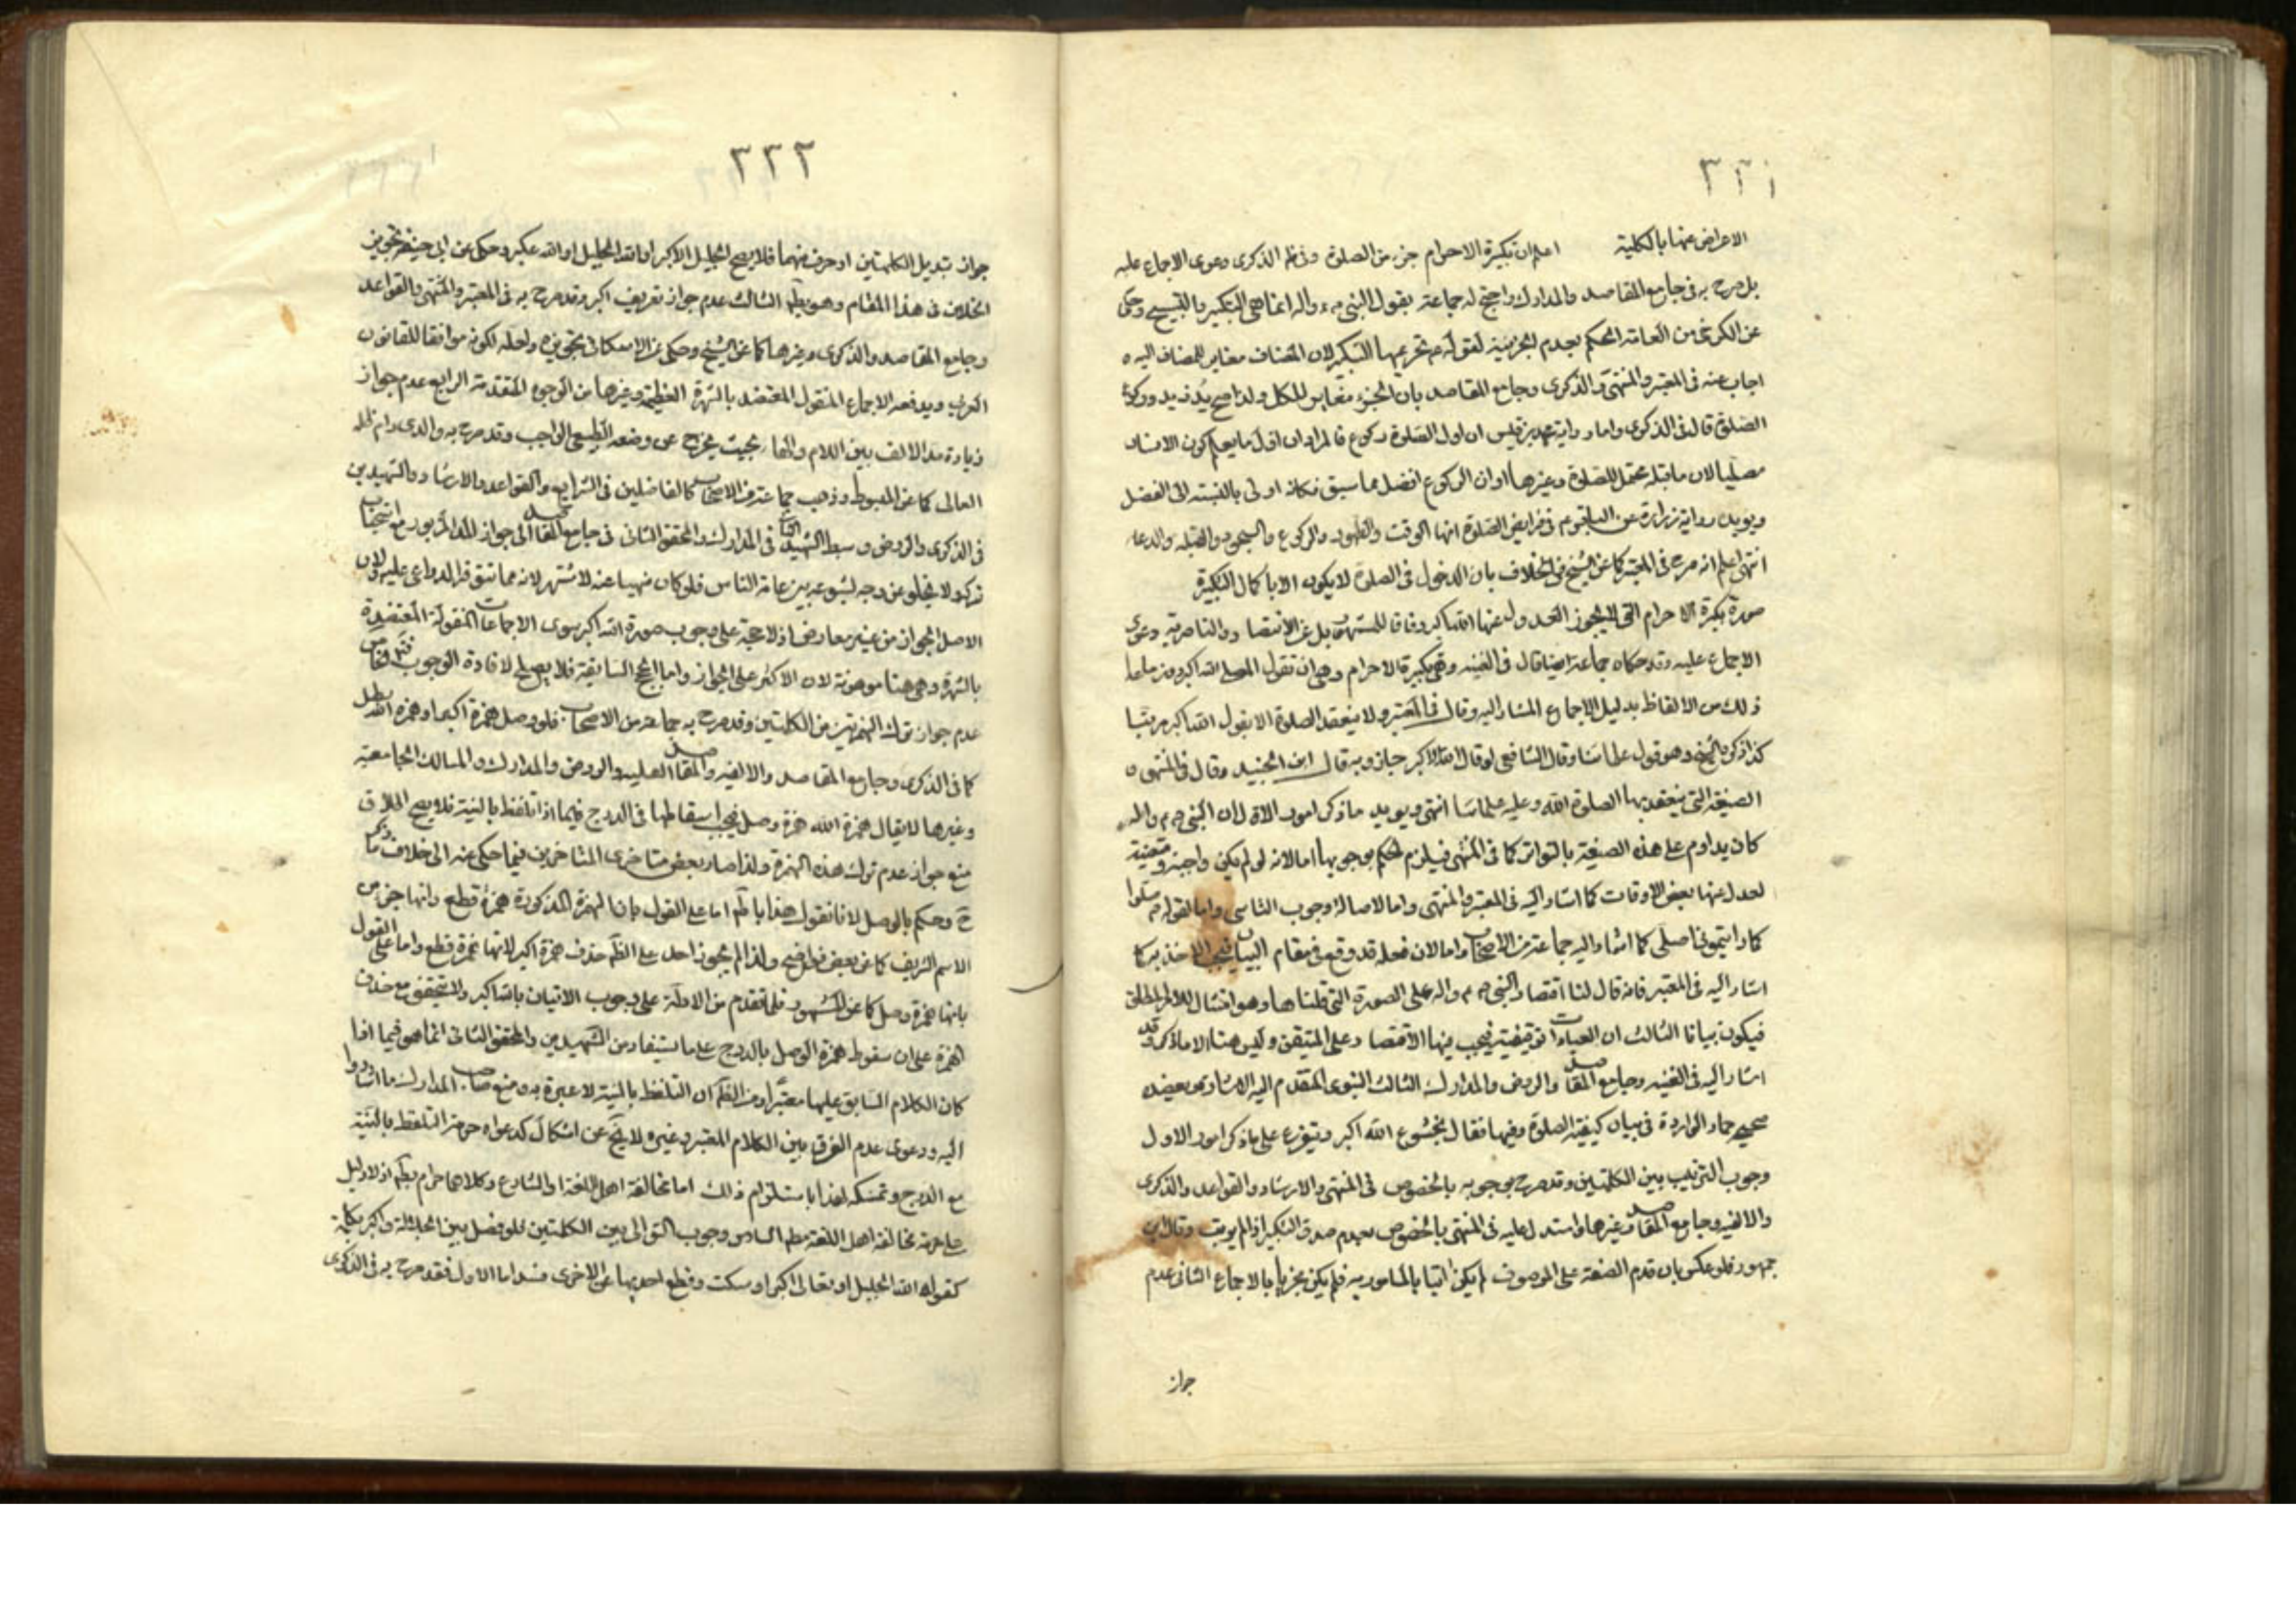 ٣٣١
الاعراض عنها بالكلية اعلم ان تكبيرة الاحرام جزء من الصلوة وفى ظ الذكرى دعوى الاجماع عليه
بل صرح به فى جامع المقاصد والمدارك واحتج له جماعة بقول النبى ص واله انما هى التكبير والتسبيح وحكى
عن الكرخى من العامة الحكم بعدم الجزئية لقوله ع تحريمها التكبير لان المضاف مغاير للمضاف اليه و
اجاب عنه فى المعتبر والمنتهى والذكرى وجامع المقاصد بان الجزء مغاير للكل ولذا صح يد زيد وركوع
الصلوة قال فى الذكرى واما رواية محمد بن قيس ان اول الصلوة ركوع فالمراد ان اول ما يعلم كون الانسان
مصليا لان ما قبله محتمل للصلوة وغيرها اوان الركوع افضل مما سبق فكانه اولى بالنسبة الى الفضل
ويؤيده رواية زرارة عن الباقر ع فى فرايض الصلوة انها الوقت والطهور والركوع والسجود والقبلة والدعاء
انتهى اعلم انه صرح فى المعتبر كما عن الشيخ فى الخلاف بان الدخول فى الصلوة لا يكون الا باكمال التكبيرة
صورة تكبيرة الاحرام التى لا يجوز العدول عنها الله اكبر وفاقا للمشهور بل عن الانتصار والناصرية دعوى
الاجماع عليه وقد حكاه جماعة ايضا قال فى الغنية وتكبيرة الاحرام وهى ان تقول المصلى الله اكبر
ذلك من الالفاظ بدليل الاجماع المشار اليه وقال فى المعتبر ولا ينعقد الصلوة الا بقول الله اكبر مرتبا
كذا ذكره الشيخ وهو قول علمائنا وقال الشافعى لو قال الله الاكبر جاز وبه قال ابن الجنيد وقال فى المنتهى و
الصيغة التى ينعقد بها الصلوة الله وعليه علمائنا انتهى ويؤيد ما ذكر امور الاول ان النبى ص واله
كان يداوم على هذه الصيغة بالتواتر كما فى المنتهى فيلزم الحكم بوجوبها اما لانه لو لم يكن واجبة ومتعينة
لعدل عنها بعض الاوقات كما اشار اليه فى المعتبر والمنتهى واما لاصالة وجوب التاسى واما لقوله ص صلوا
كما رايتمونى اصلى كما اشار اليه جماعة من الاصحاب واما لان فعله قد وقع فى مقام البيان فيجب الاخذ به كما
اشار اليه فى المعتبر فانه قال لنا اقتصار النبى ص واله على الصورة التى قلناها وهو امتثال للامر المطلق
فيكون بيانا الثالث ان العبادات توقيفية فيجب فيها الاقتصار على المتيقن وليس هنا الا ما ذكر وقد
اشار اليه فى الغنية وجامع المقاصد والروض والمدارك الثالث النبوى المتقدم اليه الاشارة بعضده
صحيح حماد الواردة فى بيان كيفية الصلوة وفيها فقال بخشوع الله اكبر ويتفرع على ما ذكر امور الاول
وجوب الترتيب بين الكلمتين وقد صرح بوجوبه بالخصوص فى المنتهى والارشاد والقواعد والذكرى
والالفية وجامع المقاصد وغيرها واستدل عليه فى المنتهى بالخصوص بعدم صدق التكبير اذا لم يرتب وقال ابن
جمهور فلو عكس بان قدم الصفة على الموصوف لم يكن اتيا بالمامور به فلم يكن مجزيا بالاجماع الثانى عدم
جواز
٣٣٢
جواز تبديل الكلمتين او حرف منهما فلا يصح الجليل الاكبر او الله الجليل او الله عكبر وحكى عن ابى حنيفة تجويز
الخلاف فى هذا المقام وهو بط الثالث عدم جواز تعريف اكبر وقد صرح به فى المعتبر والمنتهى والقواعد
وجامع المقاصد والذكرى وغيرها كما عن الشيخ وحكى عن الاسكافى تجويزه ولعله لكونه موافقا للقانون
العربى ويدفعه الاجماع المنقول المعتضد بالشهرة العظيمة وغيرها من الوجوه المتقدمة الرابع عدم جواز
زيادة مد الالف بين اللام والهاء بحيث يخرج عن وضعه الطبيعى الواجب وقد صرح به والدى دام ظله
العالى كما عن المبسوط وذهب جماعة من الاصحاب كالفاضلين فى الشرايع والقواعد والارشاد والشهيدين
فى الذكرى والروض وسبط الشهيد الثانى فى المدارك والمحقق الثانى فى جامع المقاصد الى جواز المد المزبور مع استحباب
تركه ولا يخلو عن وجه لشيوعه بين عامة الناس فلو كان منهيا عنه لاشتهر لانه مما تتوفر الدواعى عليه ولان
الاصل الجواز من غير معارض اذ لا حجة على وجوب صورة الله اكبر سوى الاجماعات المنقولة المعتضدة
بالشهرة وهى هنا موهونة لان الاكثر على الجواز واما الحجج السابقة فلا يصلح لافادة الوجوب فتم الخامس
عدم جواز ترك الهمزتين من الكلمتين وقد صرح به جماعة من الاصحاب فلو وصل همزة اكبر او همزة الله بطل
كما فى الذكرى وجامع المقاصد والالفية والمقاصد العلية والروض والمدارك والمسالك الجامعية
وغيرها لا يقال همزة الله همزة وصل فيجب اسقاطها فى الدرج فيما اذا تلفظ بالنية فلا يصح اطلاق
منع جواز عدم ترك هذه الهمزة ولذا صار بعض متاخرى المتاخرين فيما حكى عنه الى خلاف ما ذكر
ح وحكم بالوصل لانا نقول هذا باطل اما على القول بان الهمزة المذكورة همزة قطع وانها جزء من
الاسم الشريف كما عن بعض فواضح ولذا لم يجوز احد على الظ حذف همزة اكبر لانها همزة قطع واما على القول
بانها همزة وصل كما عن المشهور فلما تقدم من الادلة على وجوب الاتيان بالله اكبر ولا يتحقق مع حذف
الهمزة على ان سقوط همزة الوصل بالدرج على ما يستفاد من الشهيدين والمحقق الثانى انما هو فيما اذا
كان الكلام السابق عليها معتبرا ومن الظ ان التلفظ بالنية لا عبرة به ومنع صاحب المدارك ما اشاروا
اليه ودعوى عدم الفرق بين الكلام المعتبر وغيره لا يخ عن اشكال كدعواه حرمة التلفظ بالنية
مع الدرج وتمسكه لهذا باستلزام ذلك اما مخالفة اهل اللغة او الشارع وكلاهما حرام بط اذ لا دليل
على حرمة مخالفة اهل اللغة مط السادس وجوب التوالى بين الكلمتين فلو فصل بين الجلالة واكبر بكلمة
كقوله الله الجليل او تعالى اكبر او سكت وقطع احديهما عن الاخرى فسد اما الاول فقد صرح به فى الذكرى